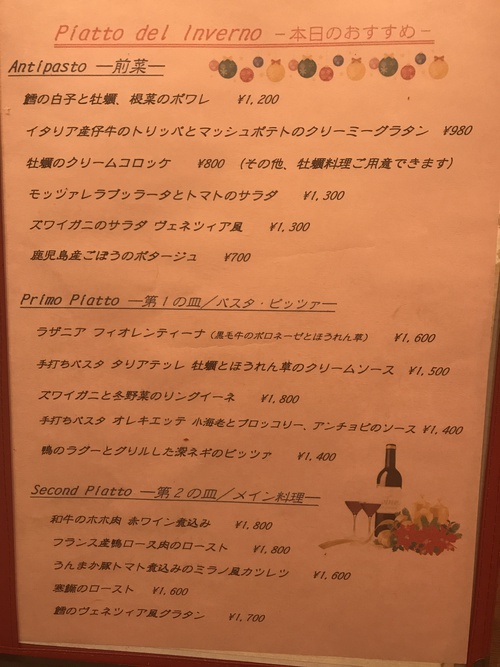 Piatto del Inverno －本日のおすすめ－
Antipasto ―前菜―
鱈の白子と牡蠣、根菜のポワレ ¥1,200
イタリア産仔牛のトリッパとマッシュポテトのクリーミーグラタン ¥980
牡蠣のクリームコロッケ ¥800 (その他、牡蠣料理ご用意できます)
モッツァレラブッラータとトマトのサラダ ¥1,300
ズワイガニのサラダ ヴェネツィア風 ¥1,300
鹿児島産ごぼうのポタージュ ¥700
Primo Piatto ―第１の皿／パスタ・ピッツァ―
ラザニア フィオレンティーナ (黒毛牛のボロネーゼとほうれん草) ¥1,600
手打ちパスタ タリアテッレ 牡蠣とほうれん草のクリームソース ¥1,500
ズワイガニと冬野菜のリングイーネ ¥1,800
手打ちパスタ オレキエッテ 小海老とブロッコリー、アンチョビのソース ¥1,400
鴨のラグーとグリルした深ネギのピッツァ ¥1,400
Second Piatto ―第２の皿／メイン料理―
和牛のホホ肉 赤ワイン煮込み ¥1,800
フランス産鴨ロース肉のロースト ¥1,800
うんまか豚トマト煮込みのミラノ風カツレツ ¥1,600
寒鰤のロースト ¥1,600
鱈のヴェネツィア風グラタン ¥1,700